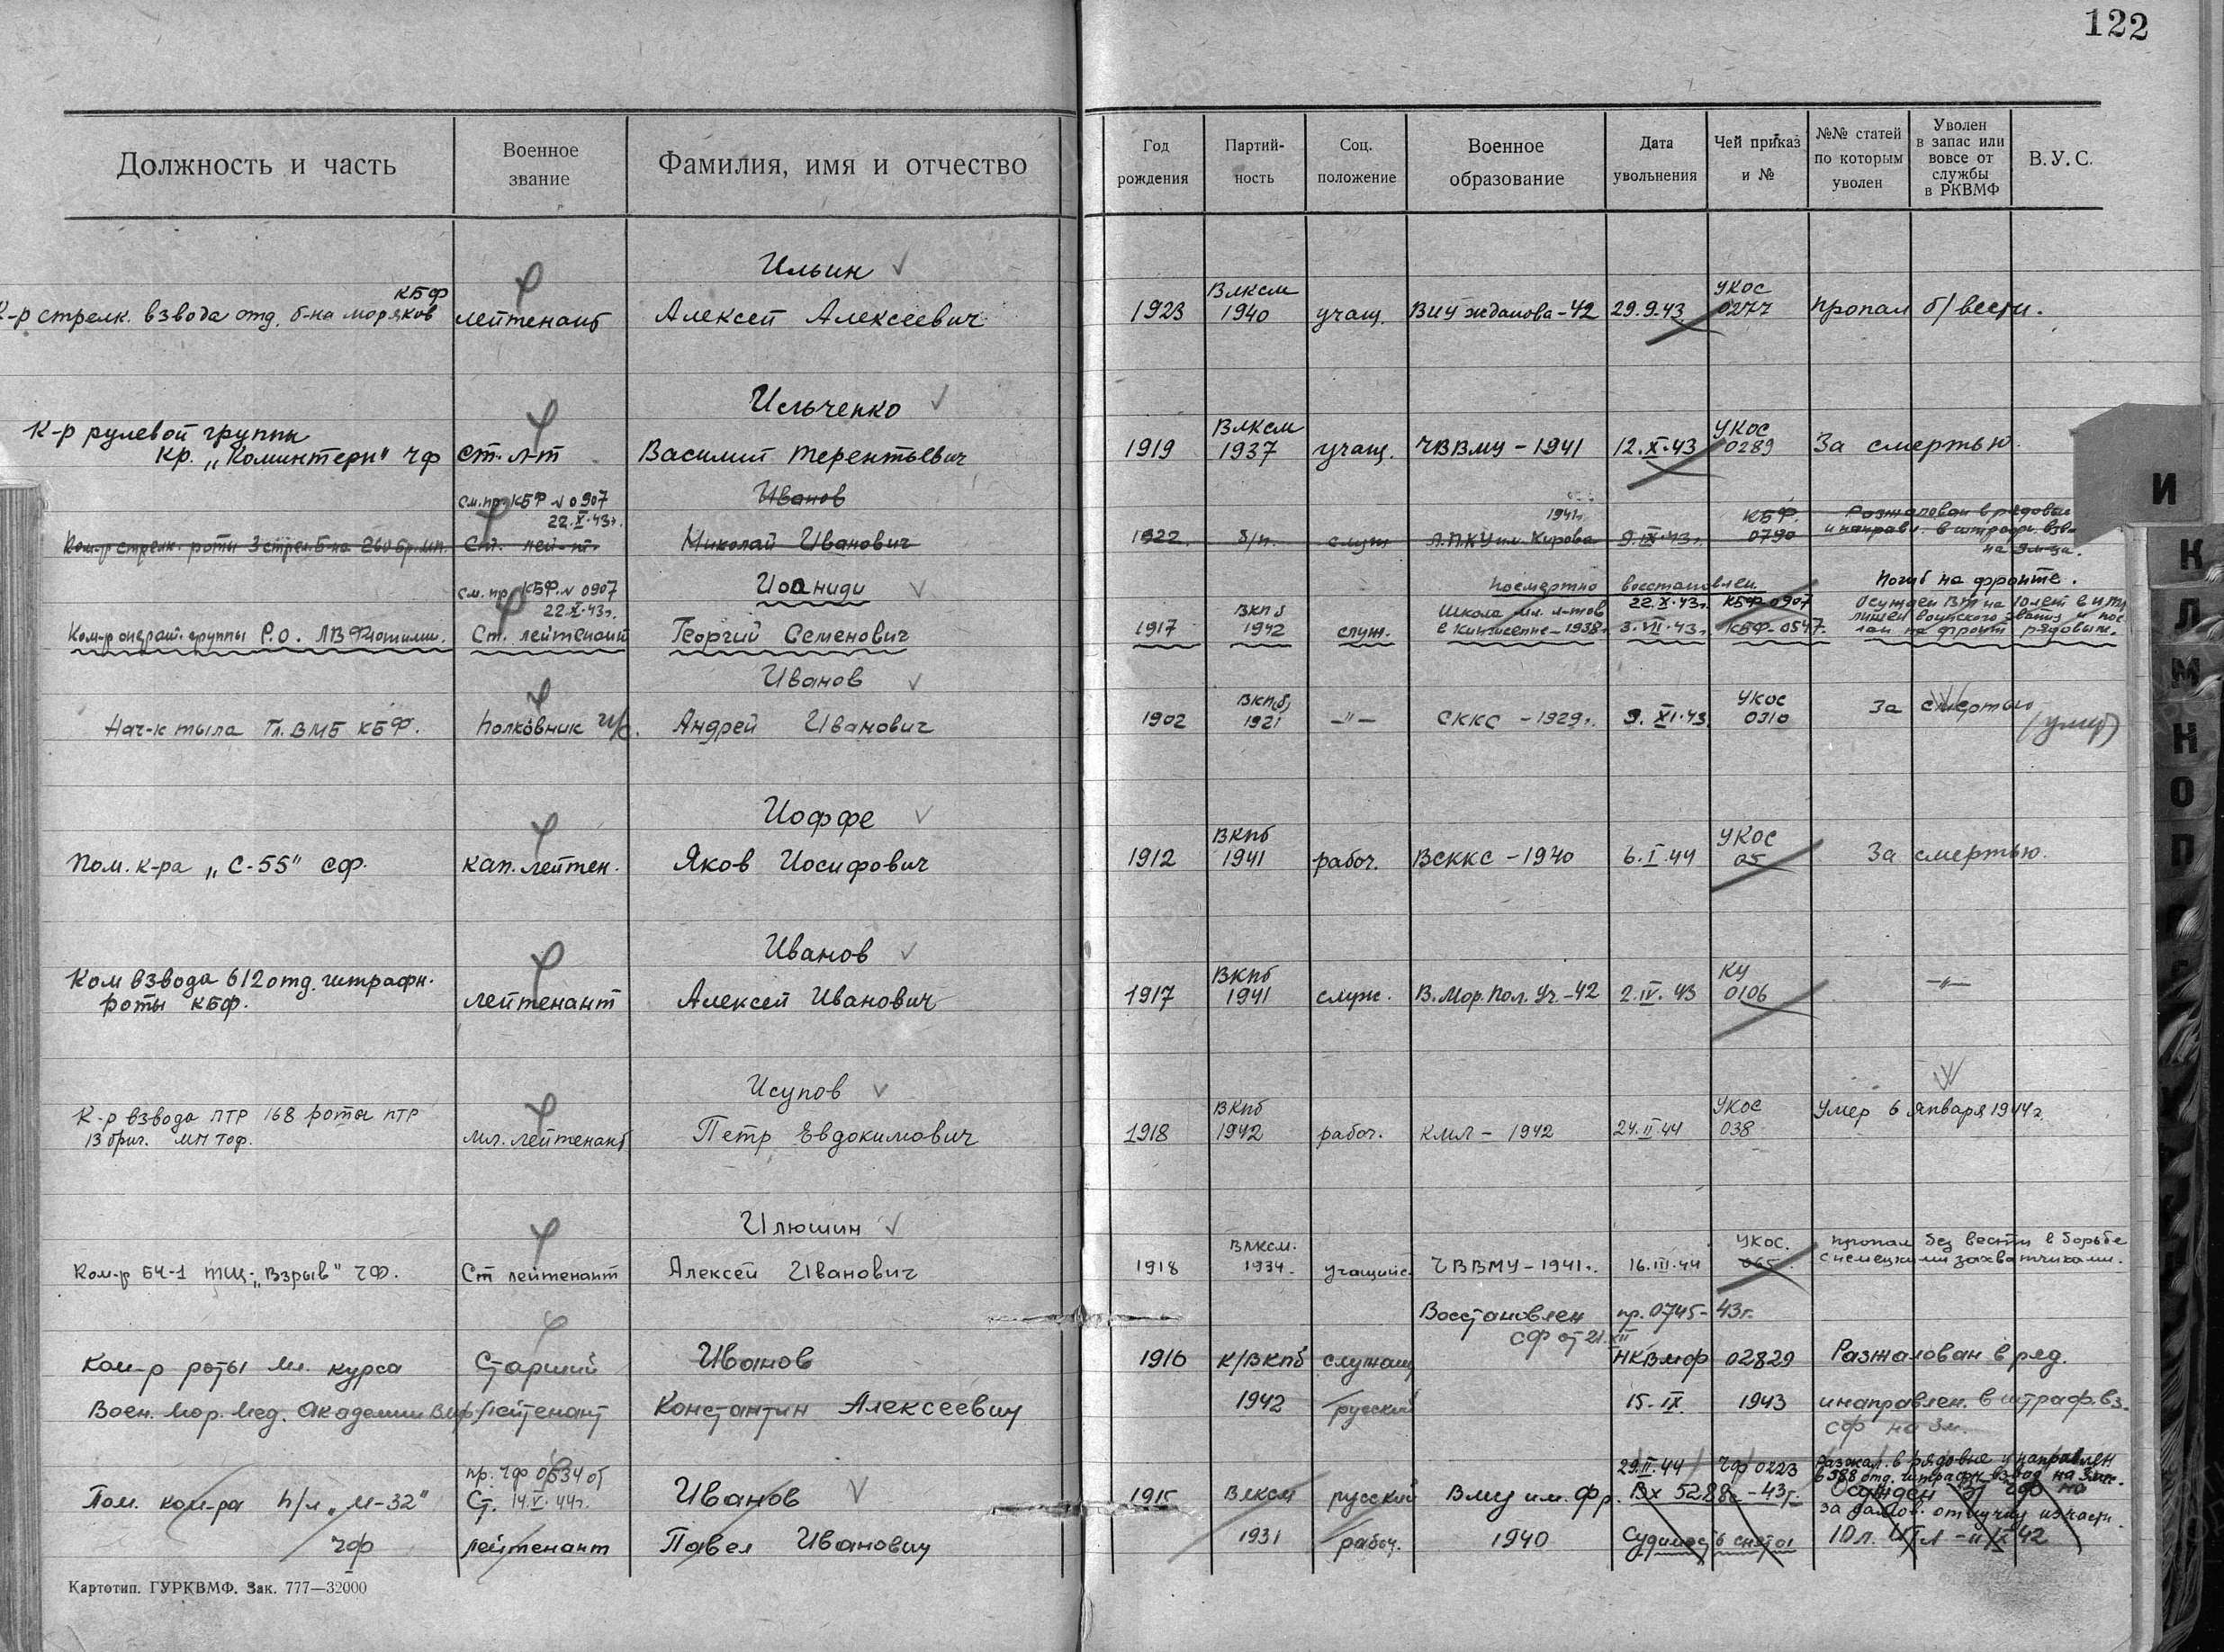 122
Должность и часть
Военное звание
Фамилия, имя и отчество
Год рождения
Партий-ность
Соц. положение
Военное образование
Дата увольнения
Чей приказ и №
№№ статей по которым уволен
Уволен в запас или вовсе от службы в РКВМФ
В.У.С.
Ильин
КБФ
К-р стрелк. взвода отд. б-на моряков лейтенант Алексей Алексеевич
ВЛКСМ УКОС
1923 1940 учащ. ВМУ Жданова-42 29.9.43 0277 пропал б/вести.
Ильченко
К-р рулевой группы
Кр. „Коминтерн" ЧФ ст. л-т Василий Терентьевич
ВЛКСМ УКОС
1919 1937 учащ. ЧВВМУ-1941 12.X.43 0289 За смертью.
См. пр. КБФ № 0907
22.X.43г.
Иванов
Ком-р стрелк. роты 3 стрел. б-на 260 бр. мп. Ст. лей-т. Николай Иванович
1941г. КБФ. Разжалован в рядовые
1922 б/п. служ Л.П.КУ им. Кирова 9.IX.43г. 0790 и направл. в штрафн. взв.
на 3 м-ца.
См. пр. КБФ. № 0907
22.X.43г.
Иоаниди
Ком-р операт. группы Р.О. ЛВФлотилии. Ст. лейтенант Георгий Семенович
посмертно восстановлен Погиб на фронте.
22.X.43г. КБФ 0907
ВКПб Школа мл. л-тов Осужден ВТ на 10 лет в ИТЛ
1917 1942 служ. в Кингисеппе-1938г. 3.VII.43г. КБФ-0547. лишен воинского звания и пос-
лан на фронт рядовым.
Иванов
Нач-к тыла Гл. ВМБ КБФ. полковник и/с. Андрей Иванович
ВКПб УКОС
1902 1921 —"— СККС -1929г. 9.XI.43 0310 За смертью
(умер)
Иоффе
Пом. к-ра „С-55" СФ. кап. лейтен. Яков Иосифович
ВКПб УКОС
1912 1941 рабоч. ВСККС-1940 6.I.44 05 За смертью.
Иванов
Ком взвода 612 отд. штрафн.
роты КБФ. лейтенант Алексей Иванович
ВКПб КУ
1917 1941 служ. В.Мор.Пол.Уч.-42 2.IV.43 0106 —"—
Исупов
К-р взвода ПТР 168 роты ПТР
13 бриг. МП ТОФ. мл. лейтенант Петр Евдокимович
ВКПб УКОС Умер 6 января 1944г.
1918 1942 рабоч. КМЛ - 1942 24.II.44 038
Илюшин
Ком-р БЧ-1 ТЩ-„Взрыв" ЧФ. Ст лейтенант Алексей Иванович
ВЛКСМ. УКОС. пропал без вести в борьбе
1918 1934. учащийс. ЧВВМУ-1941г. 16.III.44 065. с немецкими захватчиками.
Восстановлен пр. 0745-43г.
СФ от 21.XII
Ком-р роты мл. курса Старший Иванов
1916 к/ВКПб служащ НКВМФ 02829 Разжалован в ряд.
Воен. Мор. Мед. Академии ВМФ лейтенант Константин Алексеевич
1942 русский 15.IX. 1943 и направлен. в штраф. вз.
СФ на 3м.
пр. ЧФ 0534 от
14.V.44г.
Пом. ком-ра п/л „М-32" Ст. Иванов
ЧФ лейтенант Павел Иванович
29.II.44 ЧФ 0223 разжал. в рядовые и направлен
в 588 отд. штрафн. взвод на 3 мес.
1915 ВЛКСМ русский ВМУ им. Фр. Вх 5288с-43г. Осужден ВТ ЧФ на
за самов. отлучку из части
1931 рабоч. 1940 Судимость снята 10 л. ИТЛ - 11/IX 42
Картотип. ГУРКВМФ. Зак. 777—32000
И
К
Л
М
Н
О
П